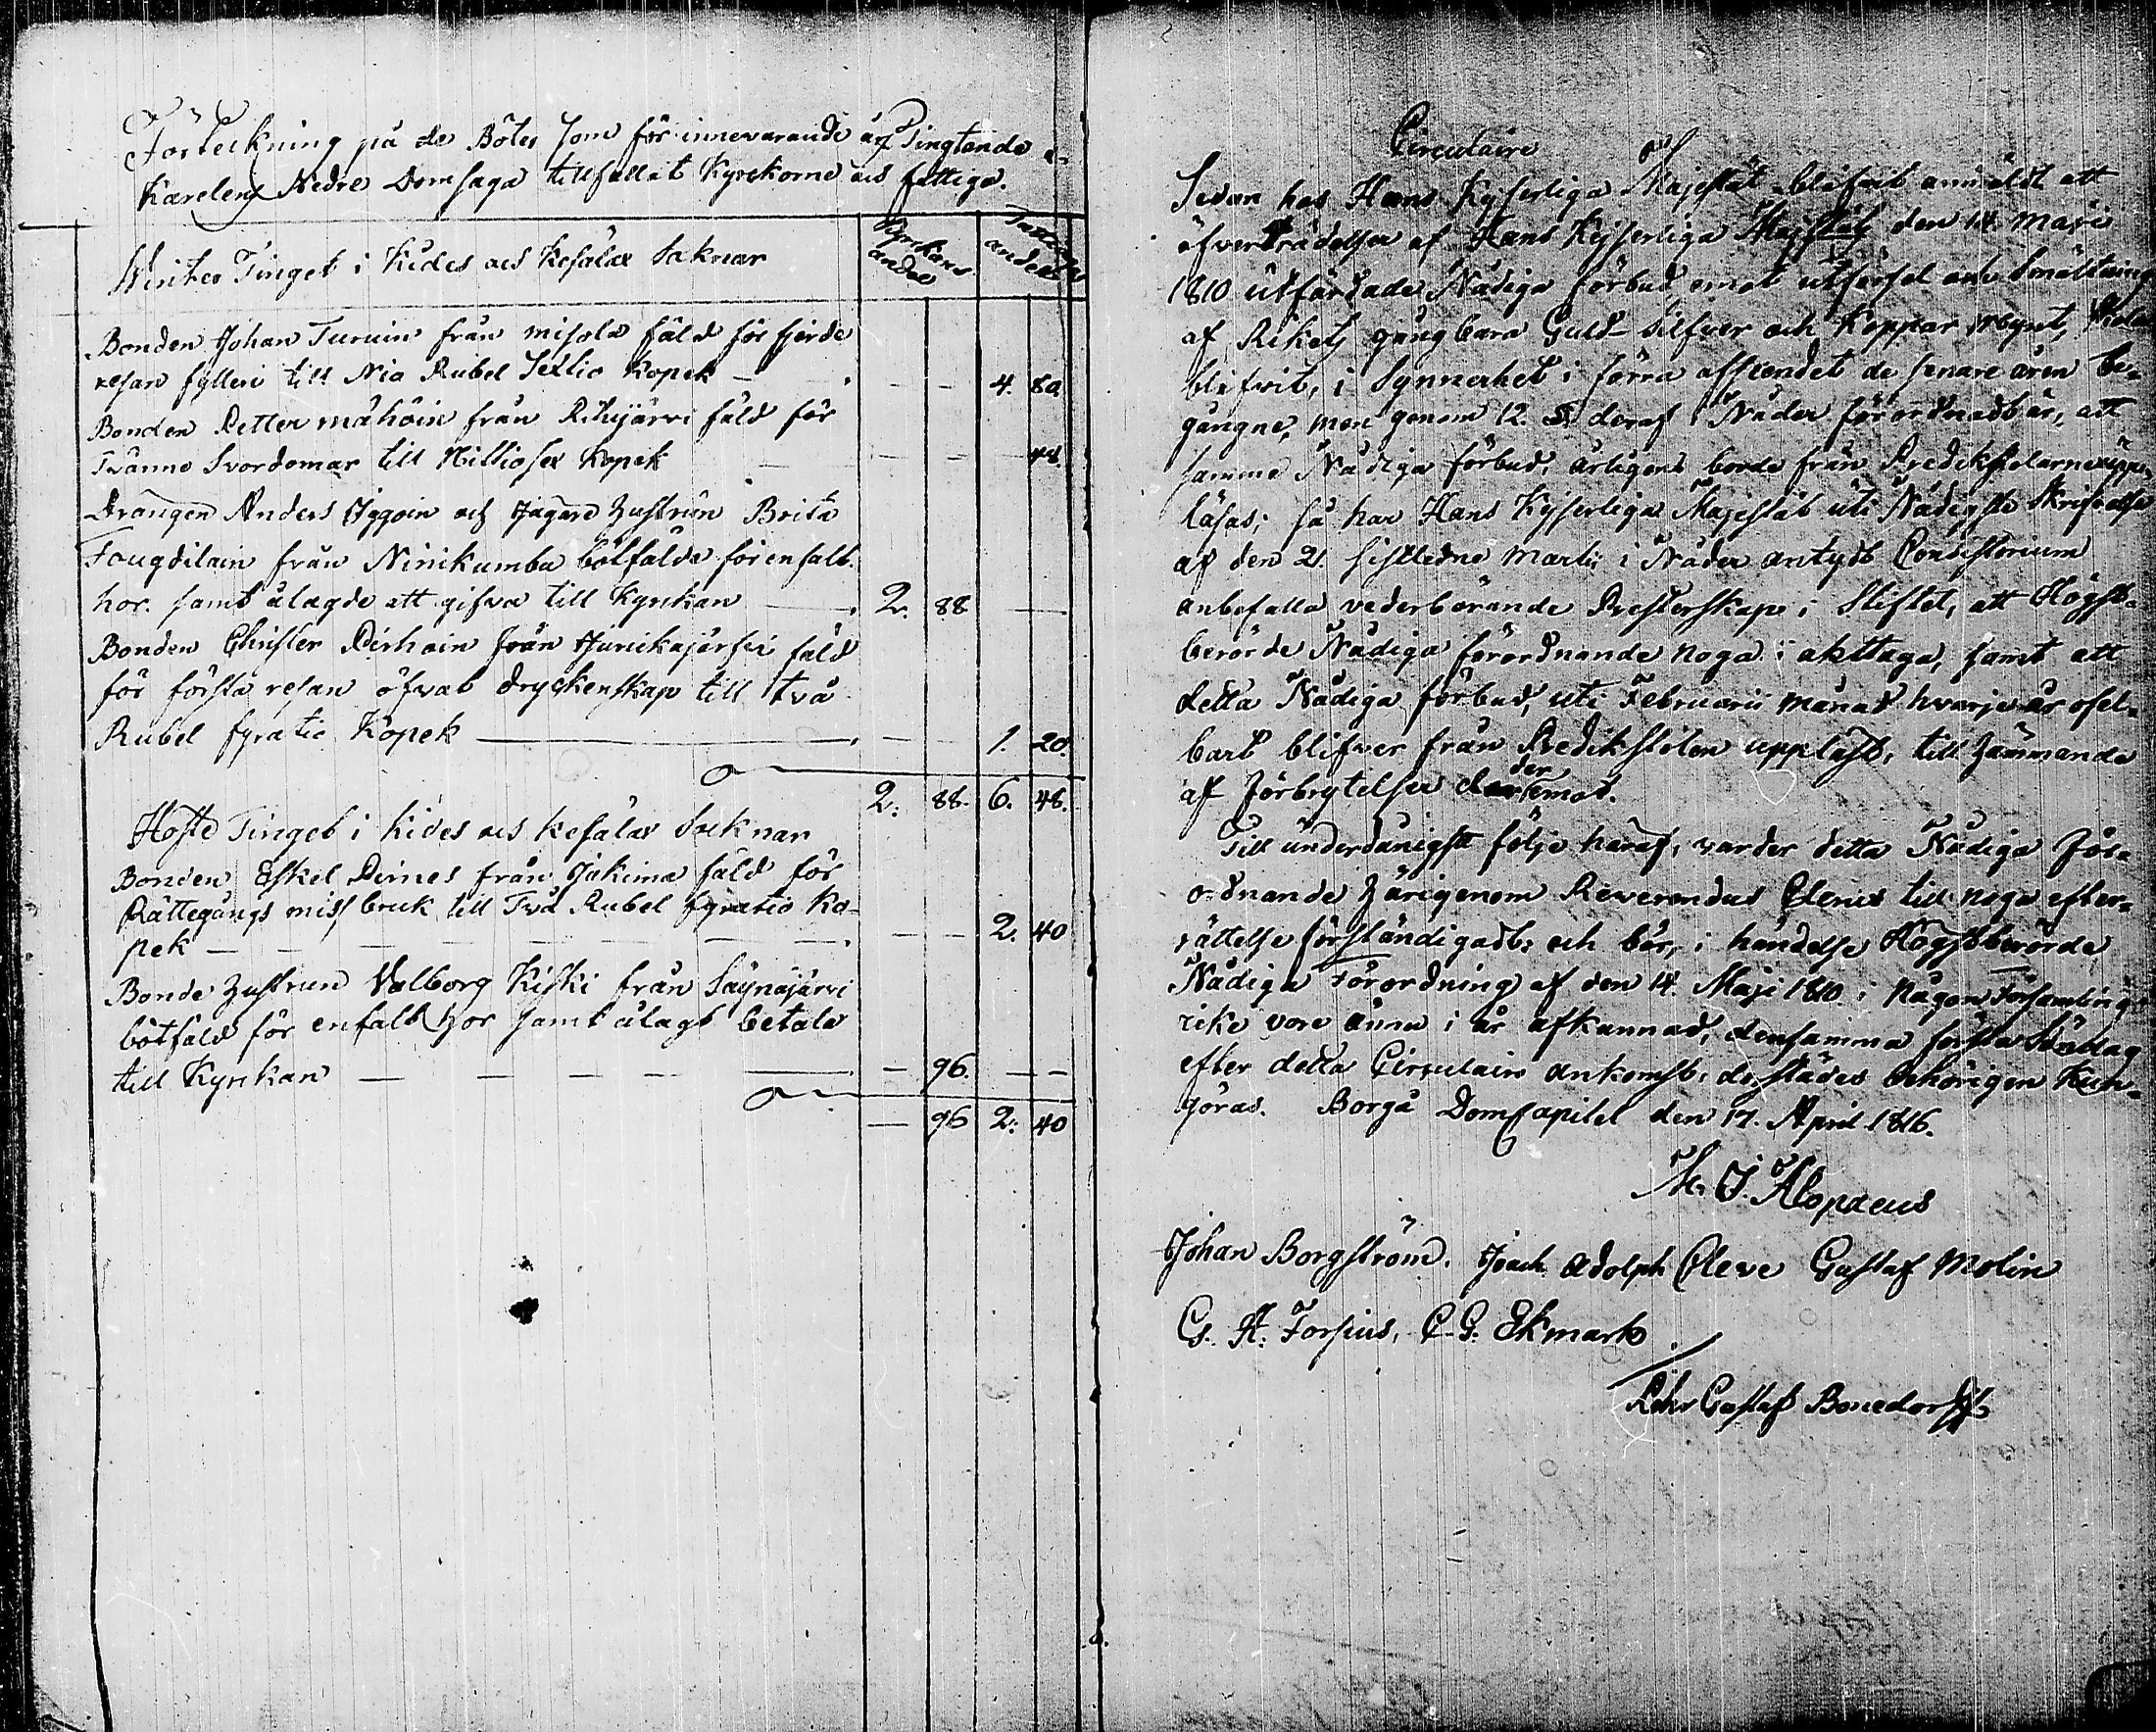 Förteckning på de Böter som för innevarande års Tingtende
Karelens Nedre Domsaga tillfallit Kyrckorne och fattige.
Winter Tinget i Kides och Kesalax Soknar
Kyrckans andel
Fattiges andel
Bonden Johan Turuin från misola fäld för fjerde
resan fylleri till Nio Rubel Sextio Kopek — 4. 80.
Bonden Petter mähöin från Rihijärvi fäld för
Tvänne Svordomar till Nittiosex Kopek — 48.
Drängen Anders Iggoin och Jägare hustrun Brita
Fougdilain från Ninikumba bötfälde för enfalt
hor. samt ålagde att gifva till Kyrckan — 2. 88 —
Bonden Christer Pirhoin från Hurickajärfvi fäld
för första resan öfvat dryckenskap till två
Rubel fyratio Kopek — 1. 20.
2. 88. 6. 48.
Höste Tinget i Kides och Kesalax Socknar
Bonden Eskel Pirnes från Jakima fäld för
Rättegångs missbruk till Två Rubel fyratio Ko-
pek — — — 2. 40
Bonde hustrun Valborg Kiski från Säynäjärvi
bötfäld för enfalt hor samt ålagt betala
till Kyrckan — — 96. — —
— 96 2. 40
Circulaire
Sedan hos Hans Kejserliga Majestät blifvit anmäldt att
öfverträdelser af Hans Kejserliga Majestäts den 14. Maji
1810 utfärdade Nådiga förbud emot utförsel och Smältning
af Rikets gångbara Guld- Silfver och Koppar mynt, skola
blifvit, i Synnerhet i förra afseendet de senare åren be-
gångne, men genom 12. § deraf i Nåder förordnadt är, att
samma Nådiga förbud, årligen borde från Predikstolarne upp-
läsas; så har Hans Kejserliga Majestät uti Nådigste Skrifvelse
af den 21. sistledne Martii i Nåder antydt Consistorium
anbefalla vederbörande Presterskap i Stiftet, att Högst-
berörde Nådiga förordnande noga i akttaga, samt att
detta Nådiga förbud, uti Februarii månad hvarje år ofel-
bart blifver från Predikstolen uppläst, till hämmande
af förbrytelser deremot.
Till underdånigst följe häraf, varder detta Nådiga för-
ordnande härigenom Reverendus Clerus till noga efter-
rättelse förständigadt; och bör, i händelse Högstberörde
Nådiga Förordning af den 14. Maji 1810 i någon Församling
icke vore ännu i år afkunnad, densamma första Söndag
efter detta Circulairs ankomst, derstädes behörigen kun-
göras. Borgå Domcapitel den 17. April 1816.
M. J. Alopaeus
Johan Borgström. Joach. Adolph Cleve Gustaf Molin
G. A. Forsius, C. G. Ekmark
Petr Gustaf Bonsdorff